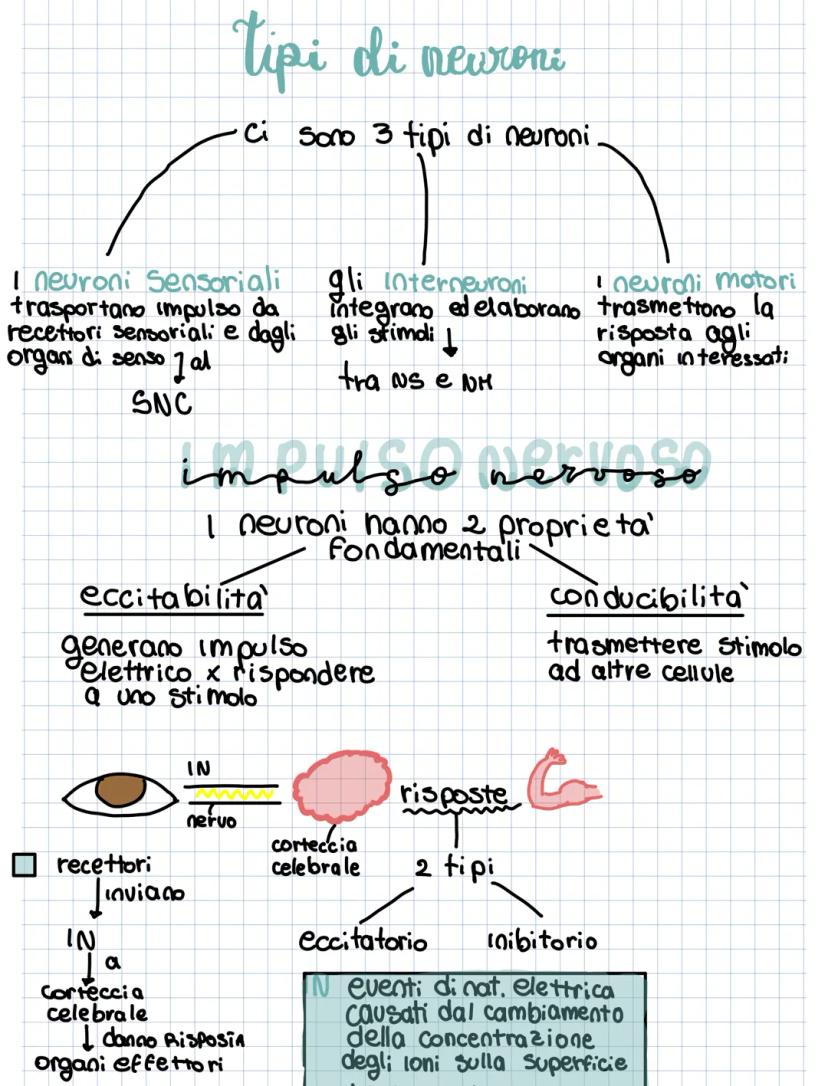 tipi di neuroni
Ci sono 3 tipi di neuroni
I neuroni sensoriali
trasportano impulso da
recettori sensoriali e dagli
organi di senso al
SNC
gli interneuroni
integrano ed elaborano
gli stimoli
tra NS e NM
I neuroni motori
trasmettono la
risposta agli
organi interessati
impulso nervoso
impulso nervoso
I neuroni hanno 2 proprietà
fondamentali
eccitabilità
generano impulso
elettrico x rispondere
a uno stimolo
conducibilità
trasmettere stimolo
ad altre cellule
IN
nervo
corteccia
celebrale
risposte
2 tipi
eccitatorio
inibitorio
recettori
inviano
IN
a
corteccia
celebrale
danno RISPOSTA
organi effettori
IN eventi di nat. elettrica
causati dal cambiamento
della concentrazione
degli ioni sulla superficie